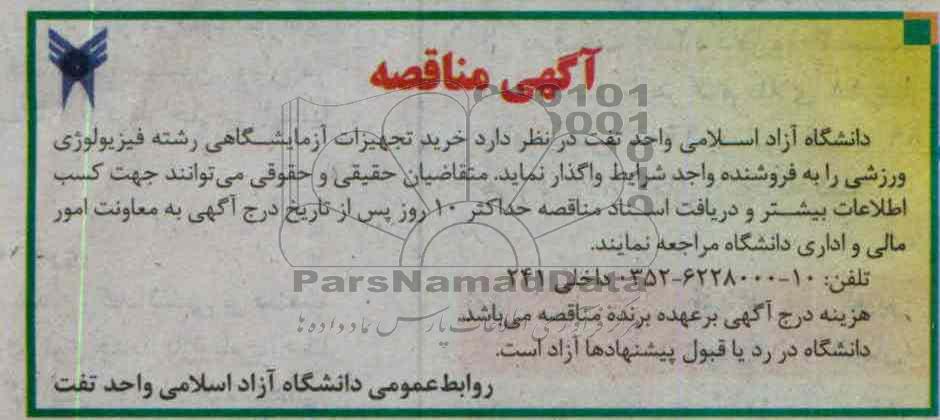 آگهی مناقصه
دانشگاه آزاد اسلامی واحد تفت در نظر دارد خرید تجهیزات آزمایشگاهی رشته فیزیولوژی
ورزشی را به فروشنده واجد شرایط واگذار نماید. متقاضیان حقیقی و حقوقی می‌توانند جهت کسب
اطلاعات بیشتر و دریافت اسناد مناقصه حداکثر ۱۰ روز پس از تاریخ درج آگهی به معاونت امور
مالی و اداری دانشگاه مراجعه نمایند.
تلفن: ۱۰-۶۲۲۸۰۰۰-۰۳۵۲ داخلی ۲۴۱
ParsNamadData
هزینه درج آگهی برعهده برنده مناقصه می‌باشد.
دانشگاه در رد یا قبول پیشنهادها آزاد است.
روابط‌عمومی دانشگاه آزاد اسلامی واحد تفت